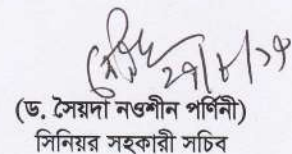 ২৭/৮/২৫
(ড. সৈয়দা নওশীন পর্ণিনী)
সিনিয়র সহকারী সচিব